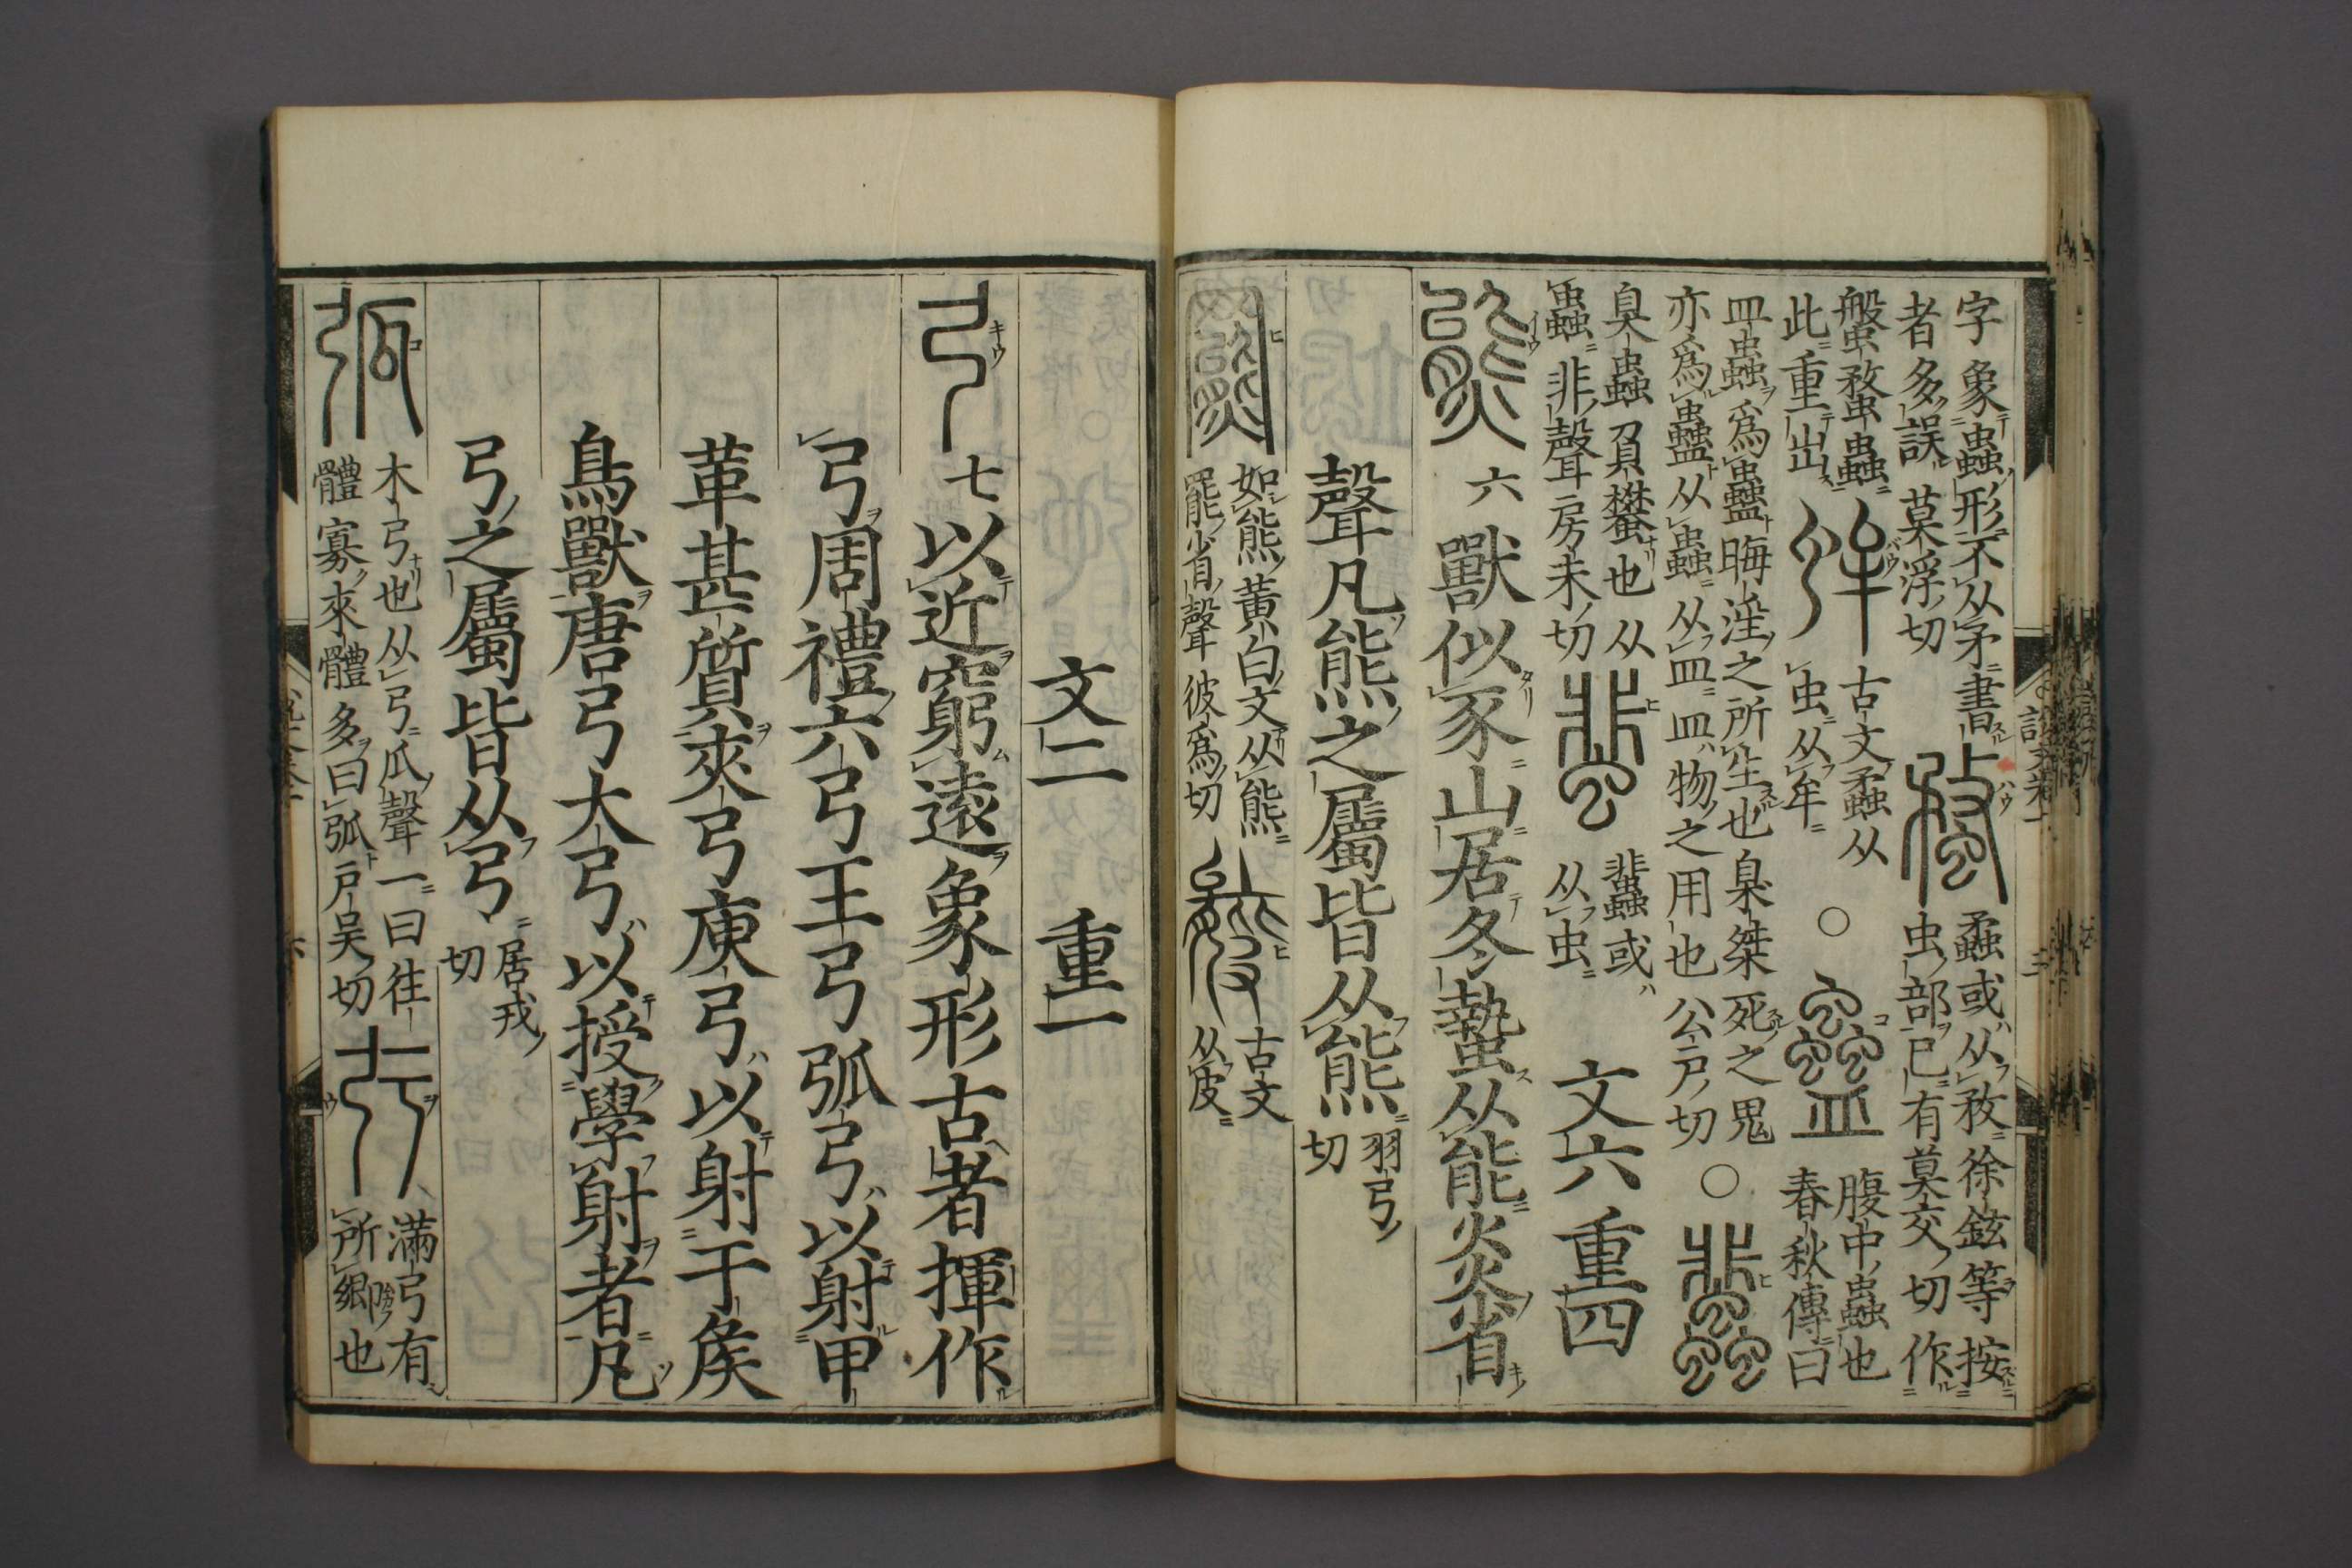 字象蟲形不从矛書
者多誤莫浮切
𧐐
蟊或从敄徐鉉等按
虫部已有莫交切作
螌蝥蟲
此重出
蛑
古文蟊从
虫从牟
○
蠱
腹中蟲也
春秋傳曰
皿蟲爲蠱晦淫之所生也臬桀死之鬼
亦爲蠱从蟲从皿皿物之用也公戸切
○
臭蟲負蠜也从
蟲非聲房未切
蜚
蜚或
从虫
文六 重四
熊 六 獸似豕山居冬蟄从能炎省
聲凡熊之屬皆从熊
羽弓
切
羆
如熊黃白文从熊
罷省聲彼爲切
古文
从皮
文二 重一
弓 七 以近窮遠象形古者揮作
弓周禮六弓王弓弧弓以射甲
革甚質夾弓庾弓以射干矦
鳥獸唐弓大弓以授學射者凡
弓之屬皆从弓
居戎
切
弧
木弓也从弓瓜聲一曰往
體寡來體多曰弧戸吳切
弙
滿弓有
所鄉也